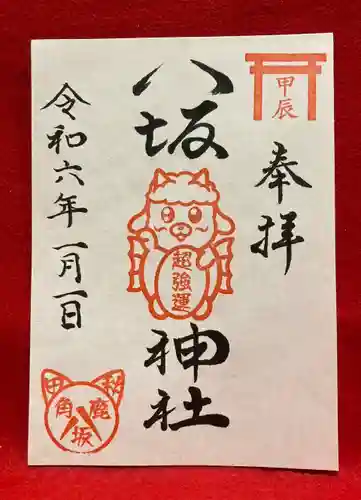 甲辰
奉拝
八坂
超強運
神社
令和六年一月一日
角鹿
坂